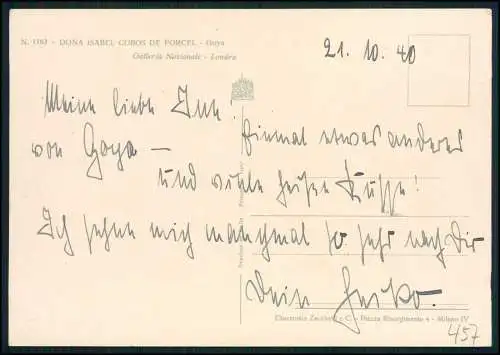 N. 1153 - DONA ISABEL COBOS DE PORCEL - Goya
Galleria Nazionale - Londra
21. 10. 40
Meine liebe
Einmal etwas anderes
von Goya —
und viele heiße Küsse!
Ich sehne mich manchmal so sehr nach Dir
Dein Heiko.
Piazza Risorgimento 4 - Milano IV
457